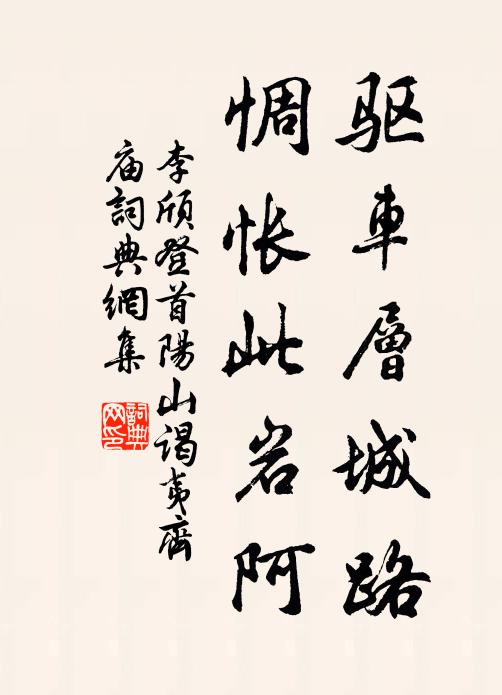 驱車層城路
惆怅此岩阿
李颀登首陽山謁夷齊
庙詞典網集
詞典网印